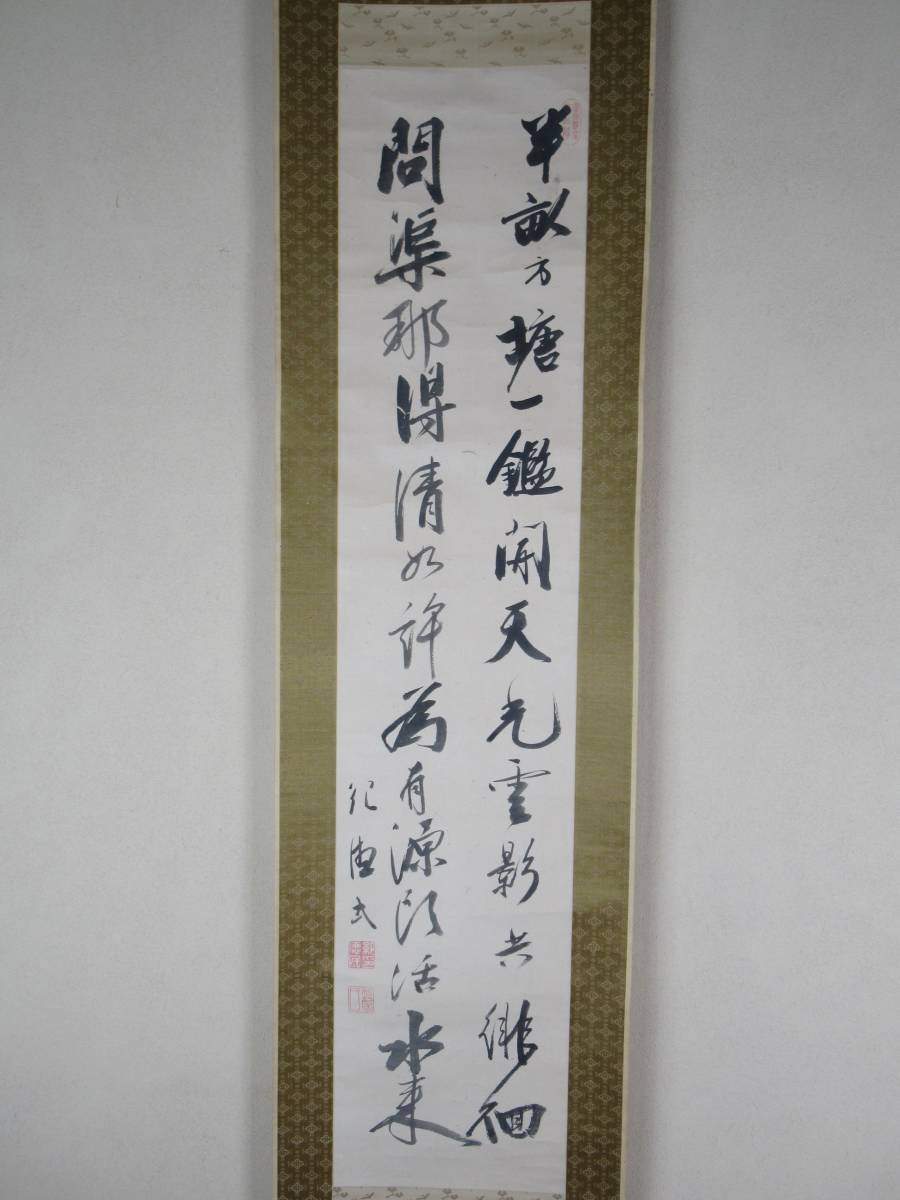 半畝方塘一鑑開天光雲影共徘徊
問渠那得清如許為有源頭活水来
紀徳民